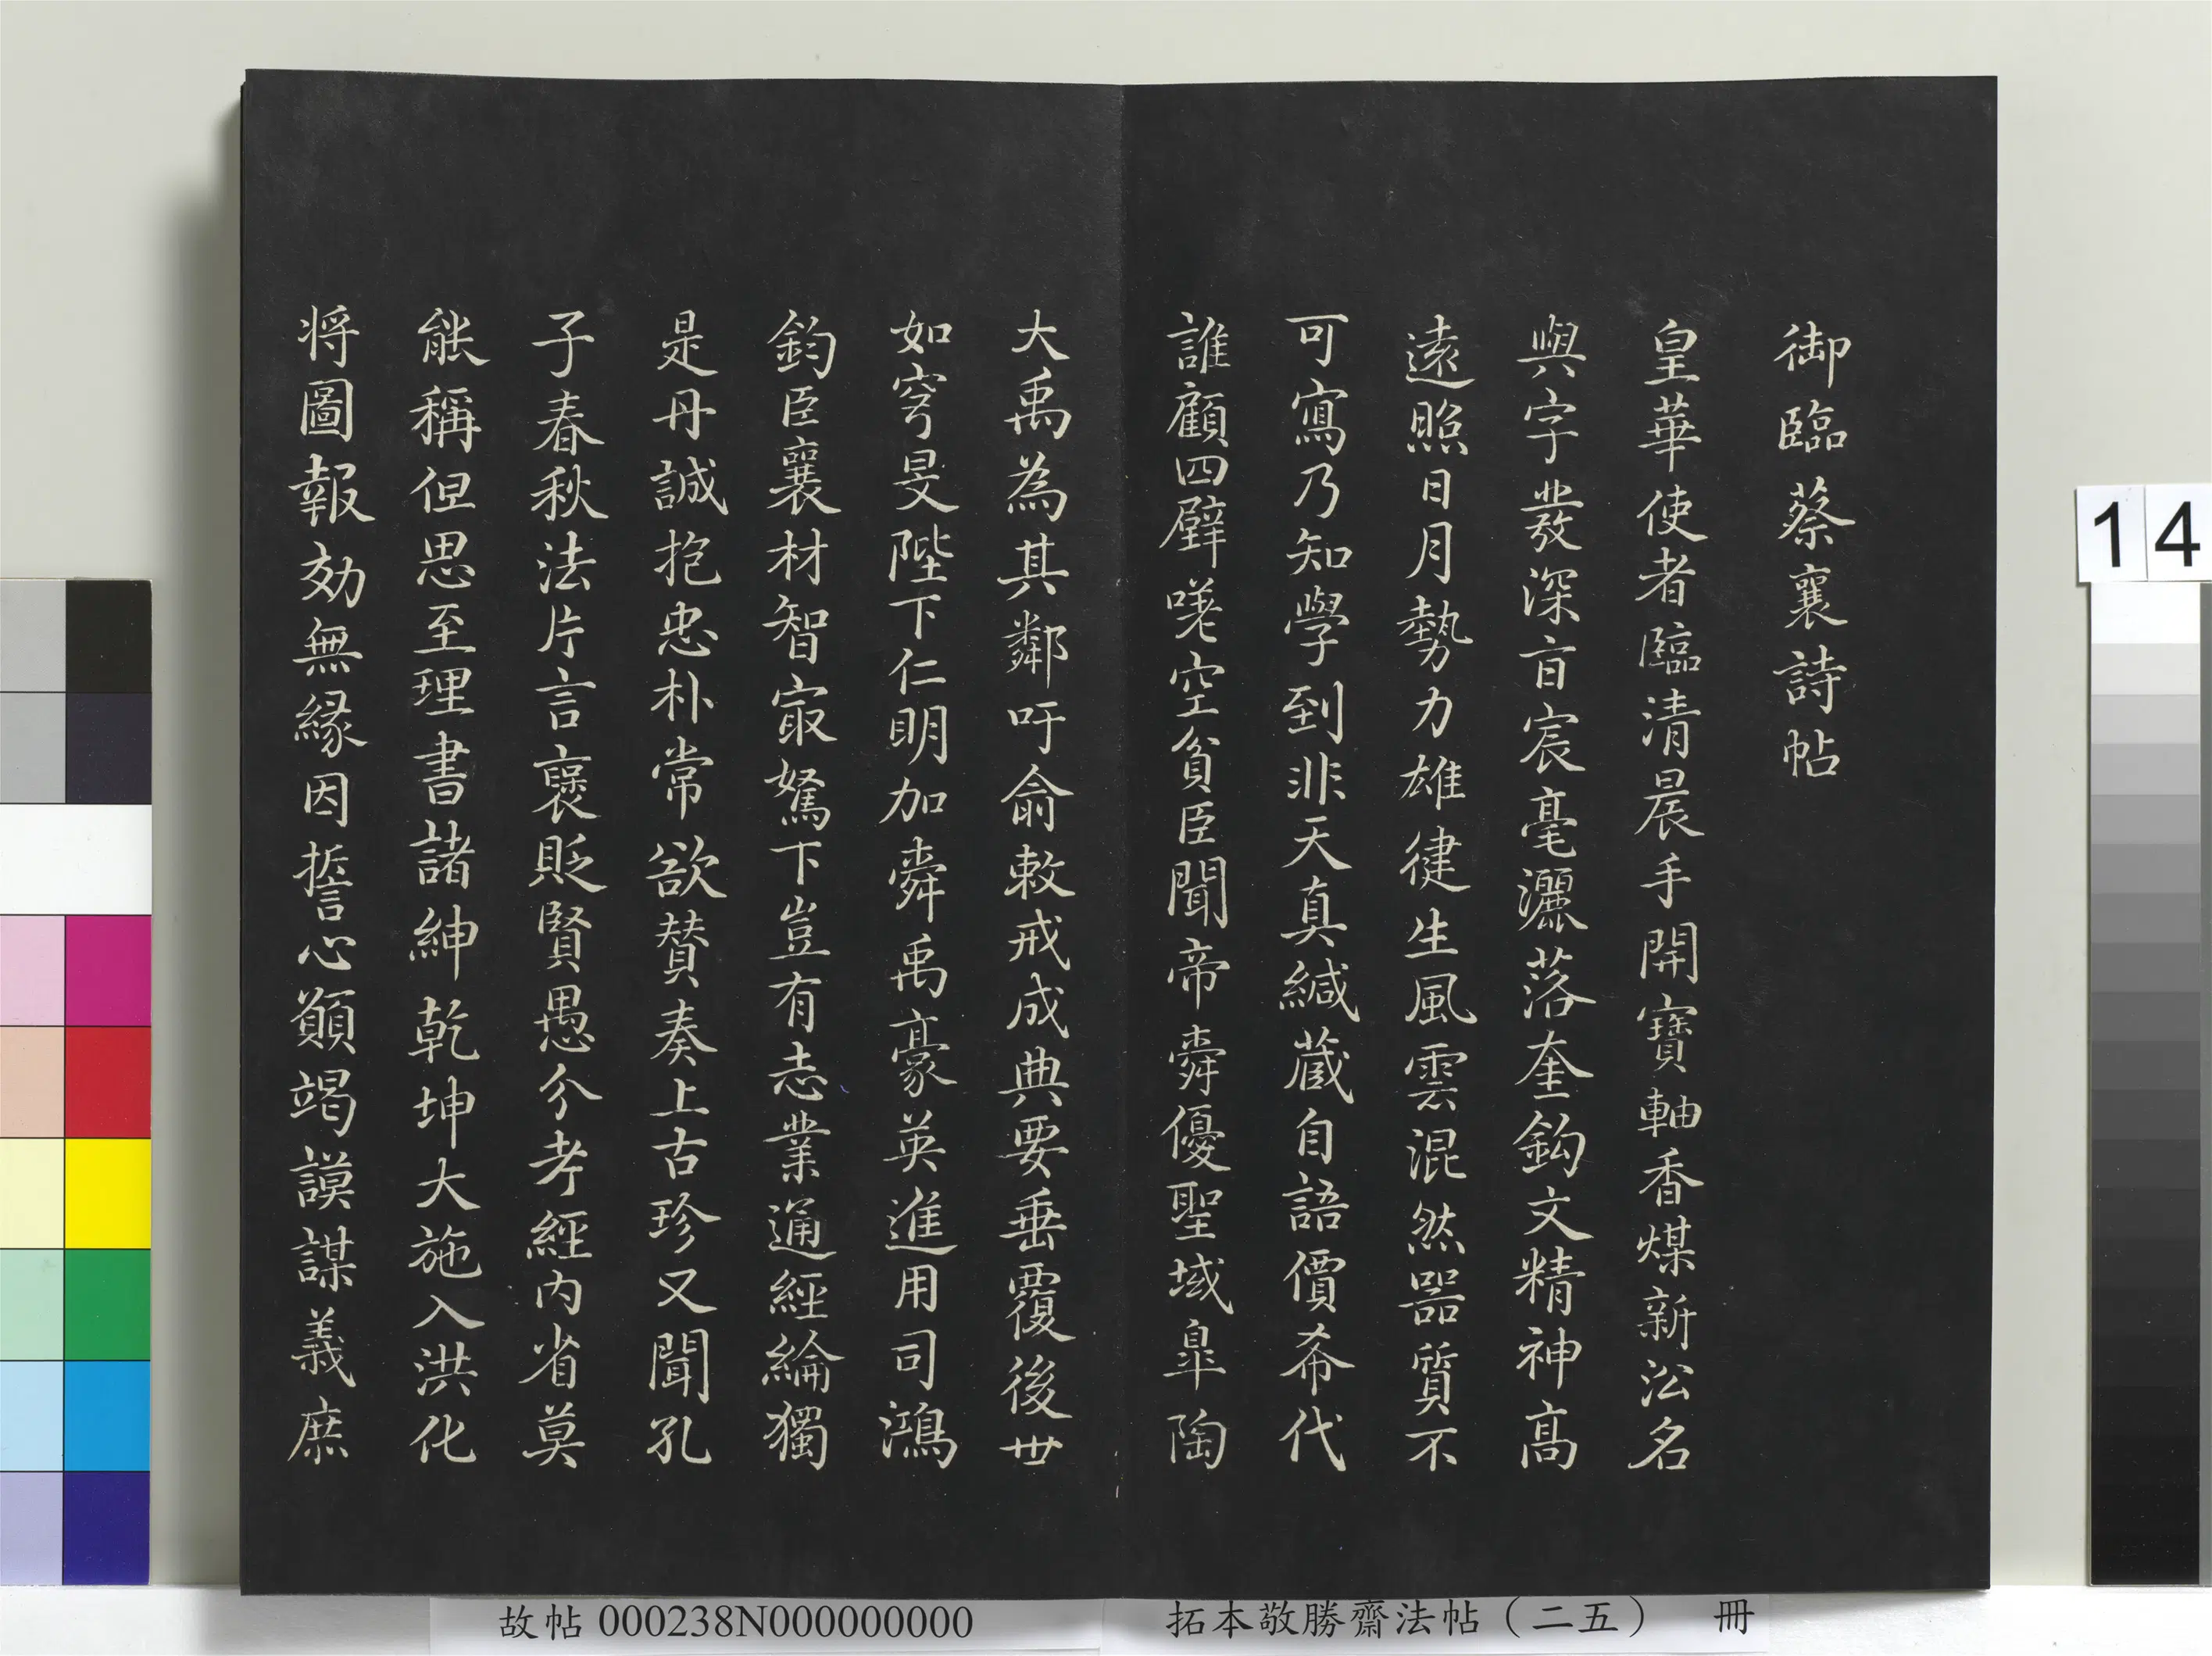 御臨蔡襄詩帖
皇華使者臨清晨手開寶軸香煤新沿名
與字發深旨宸毫灑落奎鈎文精神高
遠照日月勢力雄健生風雲混然器質不
可寫乃知學到非天真緘蔵自語價希代
誰顧四壁嗟空貧臣聞帝舜優聖域臯陶
大禹為其鄰吁俞敕戒成典要垂覆後世
如穹旻陛下仁明加舜禹豪英進用司鴻
鈞臣襄材智㝡駑下豈有志業通經綸獨
是丹誠抱忠朴常欲贊奏上古珍又聞孔
子春秋法片言襃貶賢愚分考經内省莫
能稱但思至理書諸紳乾坤大施入洪化
将圖報効無縁因誓心願竭謨謀義庶
14
故帖 000238N000000000
拓本敬勝齋法帖（二五） 冊